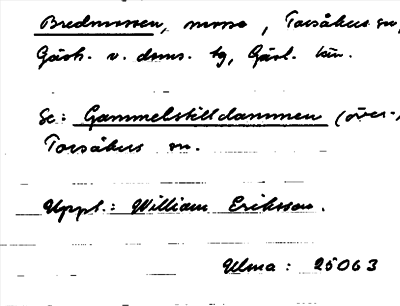 Bredmossen, mosse, Torsåkers sn,
Gästr. v. doms. tg, Gävl. län.
Se: Gammelstilldammen (övre-,
Torsåkers sn.
Uppl.: William Eriksson.
Ulma: 25063